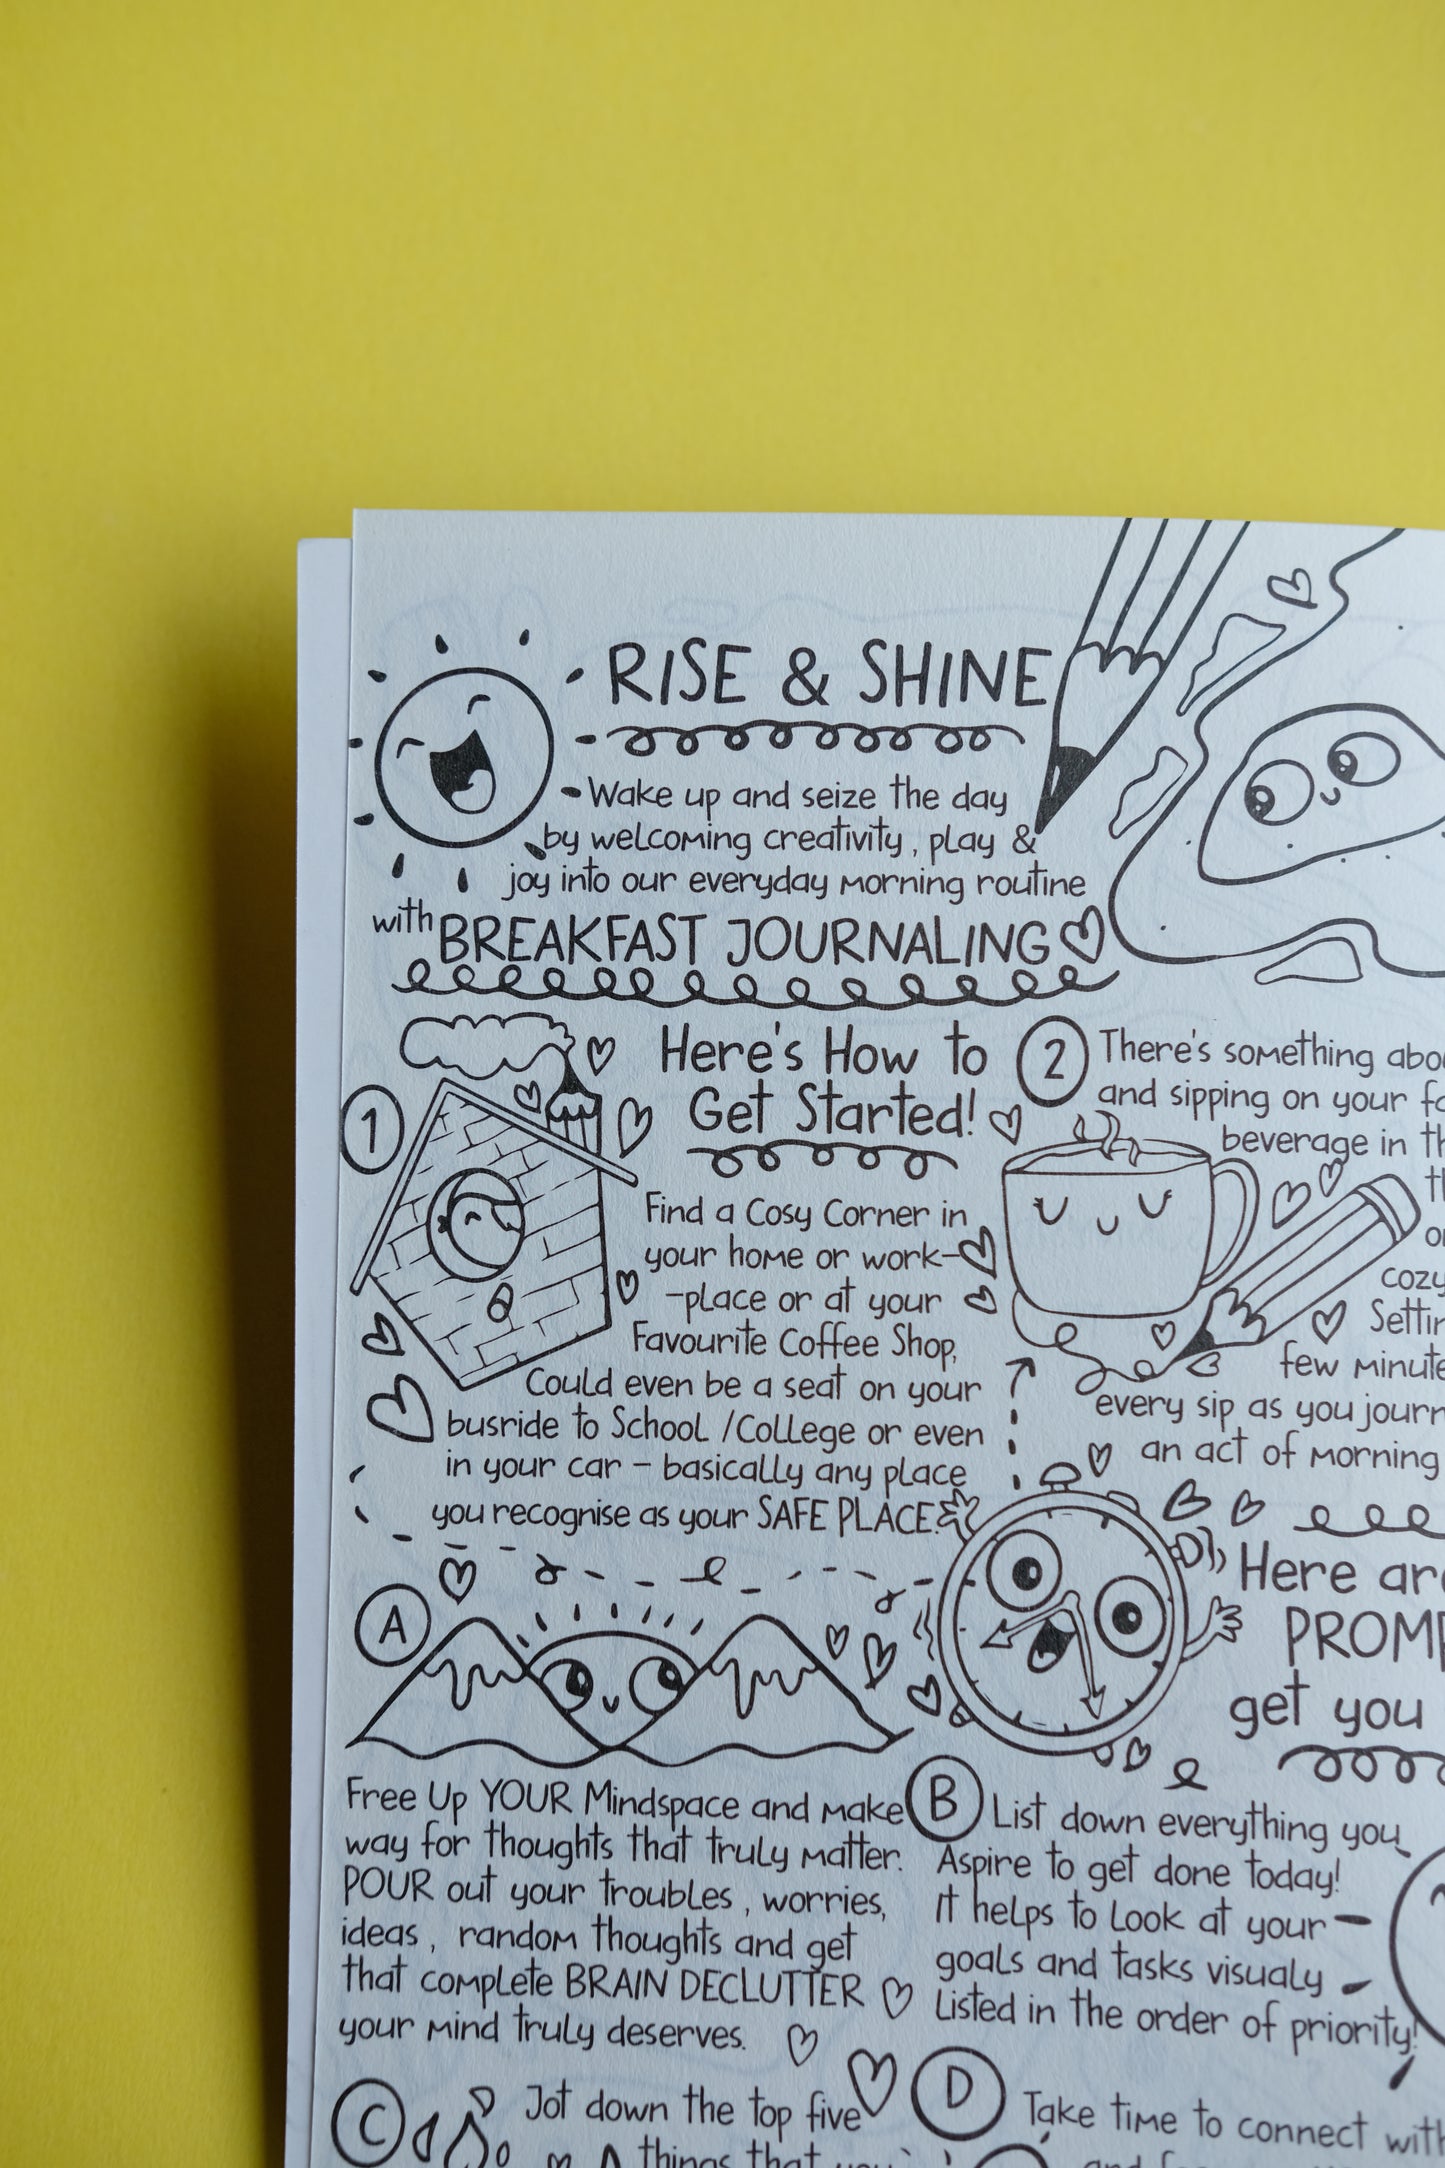 RISE & SHINE
Wake up and seize the day
by welcoming creativity, play &
joy into our everyday morning routine
with BREAKFAST JOURNALING
Here's How to
Get Started!
1
Find a Cosy Corner in
your home or work-
-place or at your
Favourite Coffee Shop,
Could even be a seat on your
busride to School /College or even
in your car - basically any place
you recognise as your SAFE PLACE.
2
There's something
and sipping on your
beverage in
cozy
few
every sip as you
an act of morning
Here
get you
A
Free Up YOUR Mindspace and make
way for thoughts that truly matter.
POUR out your troubles, worries,
ideas, random thoughts and get
that complete BRAIN DECLUTTER
your mind truly deserves.
B
List down everything you
Aspire to get done today!
it helps to Look at your
goals and tasks visualy
Listed in the order of priority!
C
Jot down the top five
things that you
D
Take time to connect with